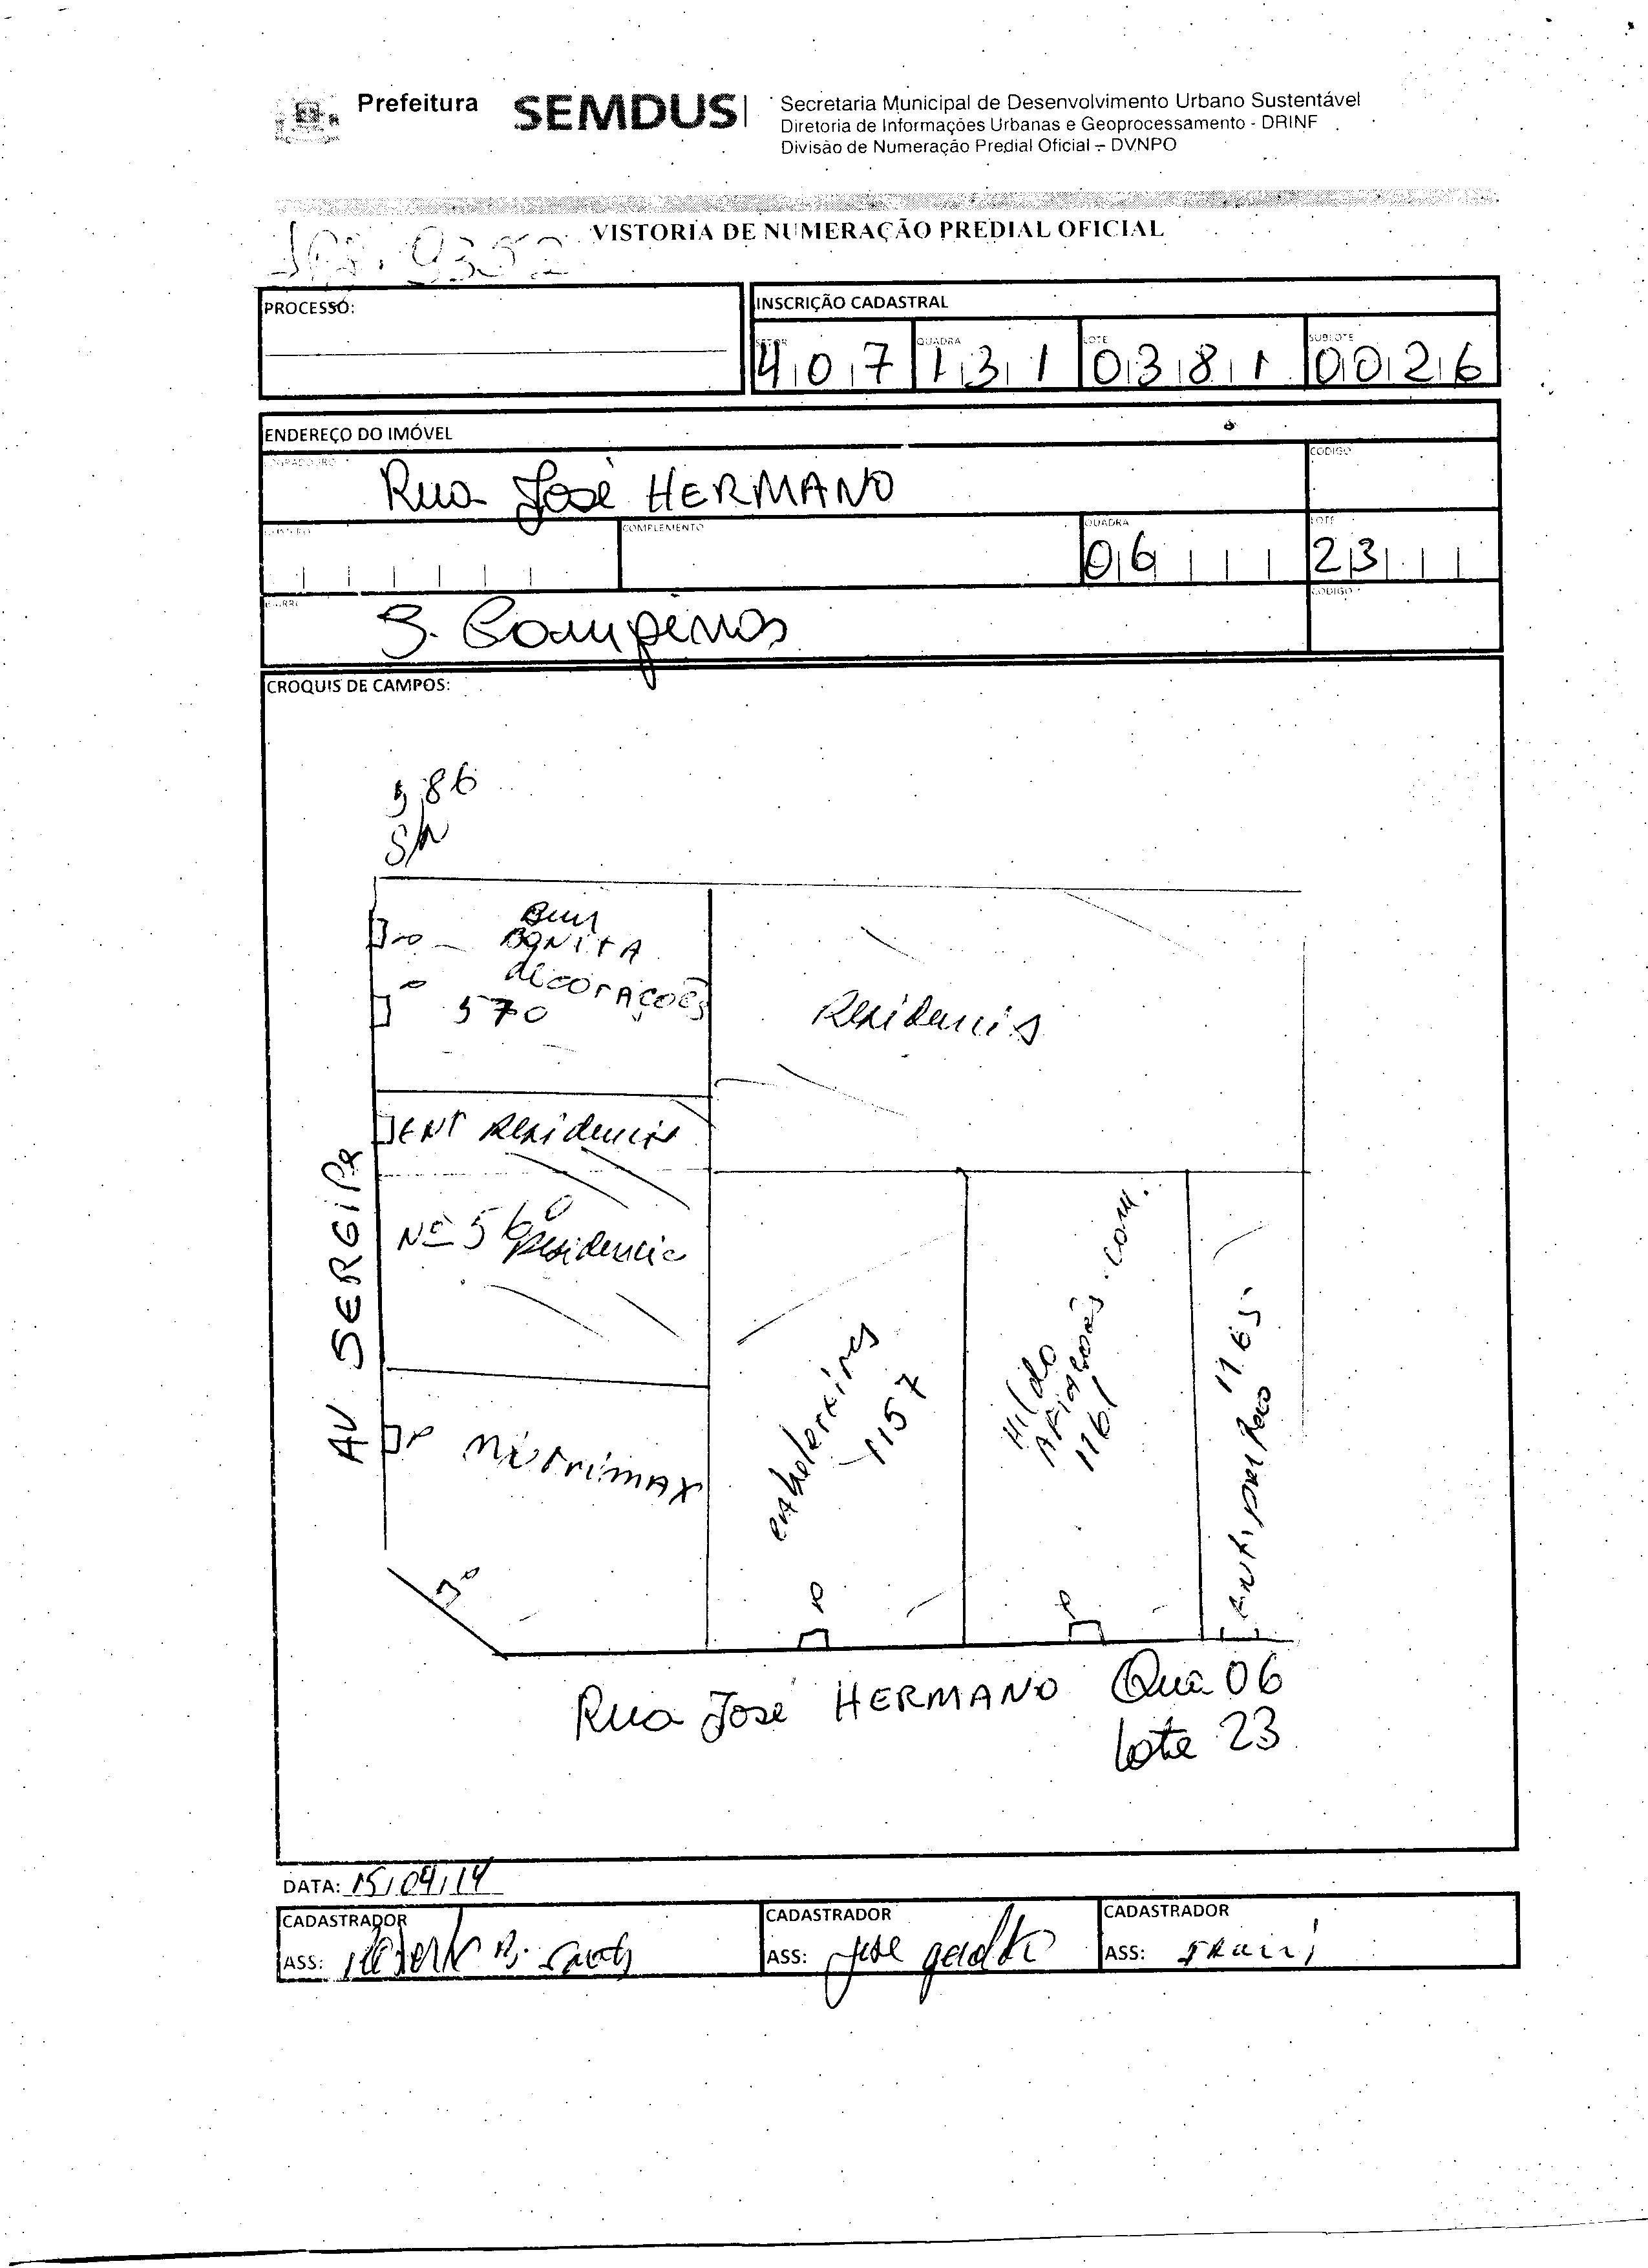 Prefeitura SEMDUS
Secretaria Municipal de Desenvolvimento Urbano Sustentável
Diretoria de Informações Urbanas e Geoprocessamento - DRINF
Divisão de Numeração Predial Oficial – DVNPO
VISTORIA DE NUMERAÇÃO PREDIAL OFICIAL
9352
PROCESSO:
INSCRIÇÃO CADASTRAL
SETOR QUADRA LOTE SUBLOTE
407 131 0381 0026
ENDEREÇO DO IMÓVEL
LOGRADOURO CODIGO
Rua José HERMANO
COMPLEMENTO QUADRA LOTE
06 23
BAIRRO CODIGO
S. Campinas
CROQUIS DE CAMPOS:
586
S/N
BONITA
decorações
570
Residencia
ENT Residencia
Nº 560
Residencia
AV SERGIPE
Nutrimax
1157
Hildo
Afiações.com.
1161
1165
Rua José HERMANO Qua 06
Lote 23
DATA: 15/04/14
CADASTRADOR CADASTRADOR CADASTRADOR
ASS: ASS: José ASS: